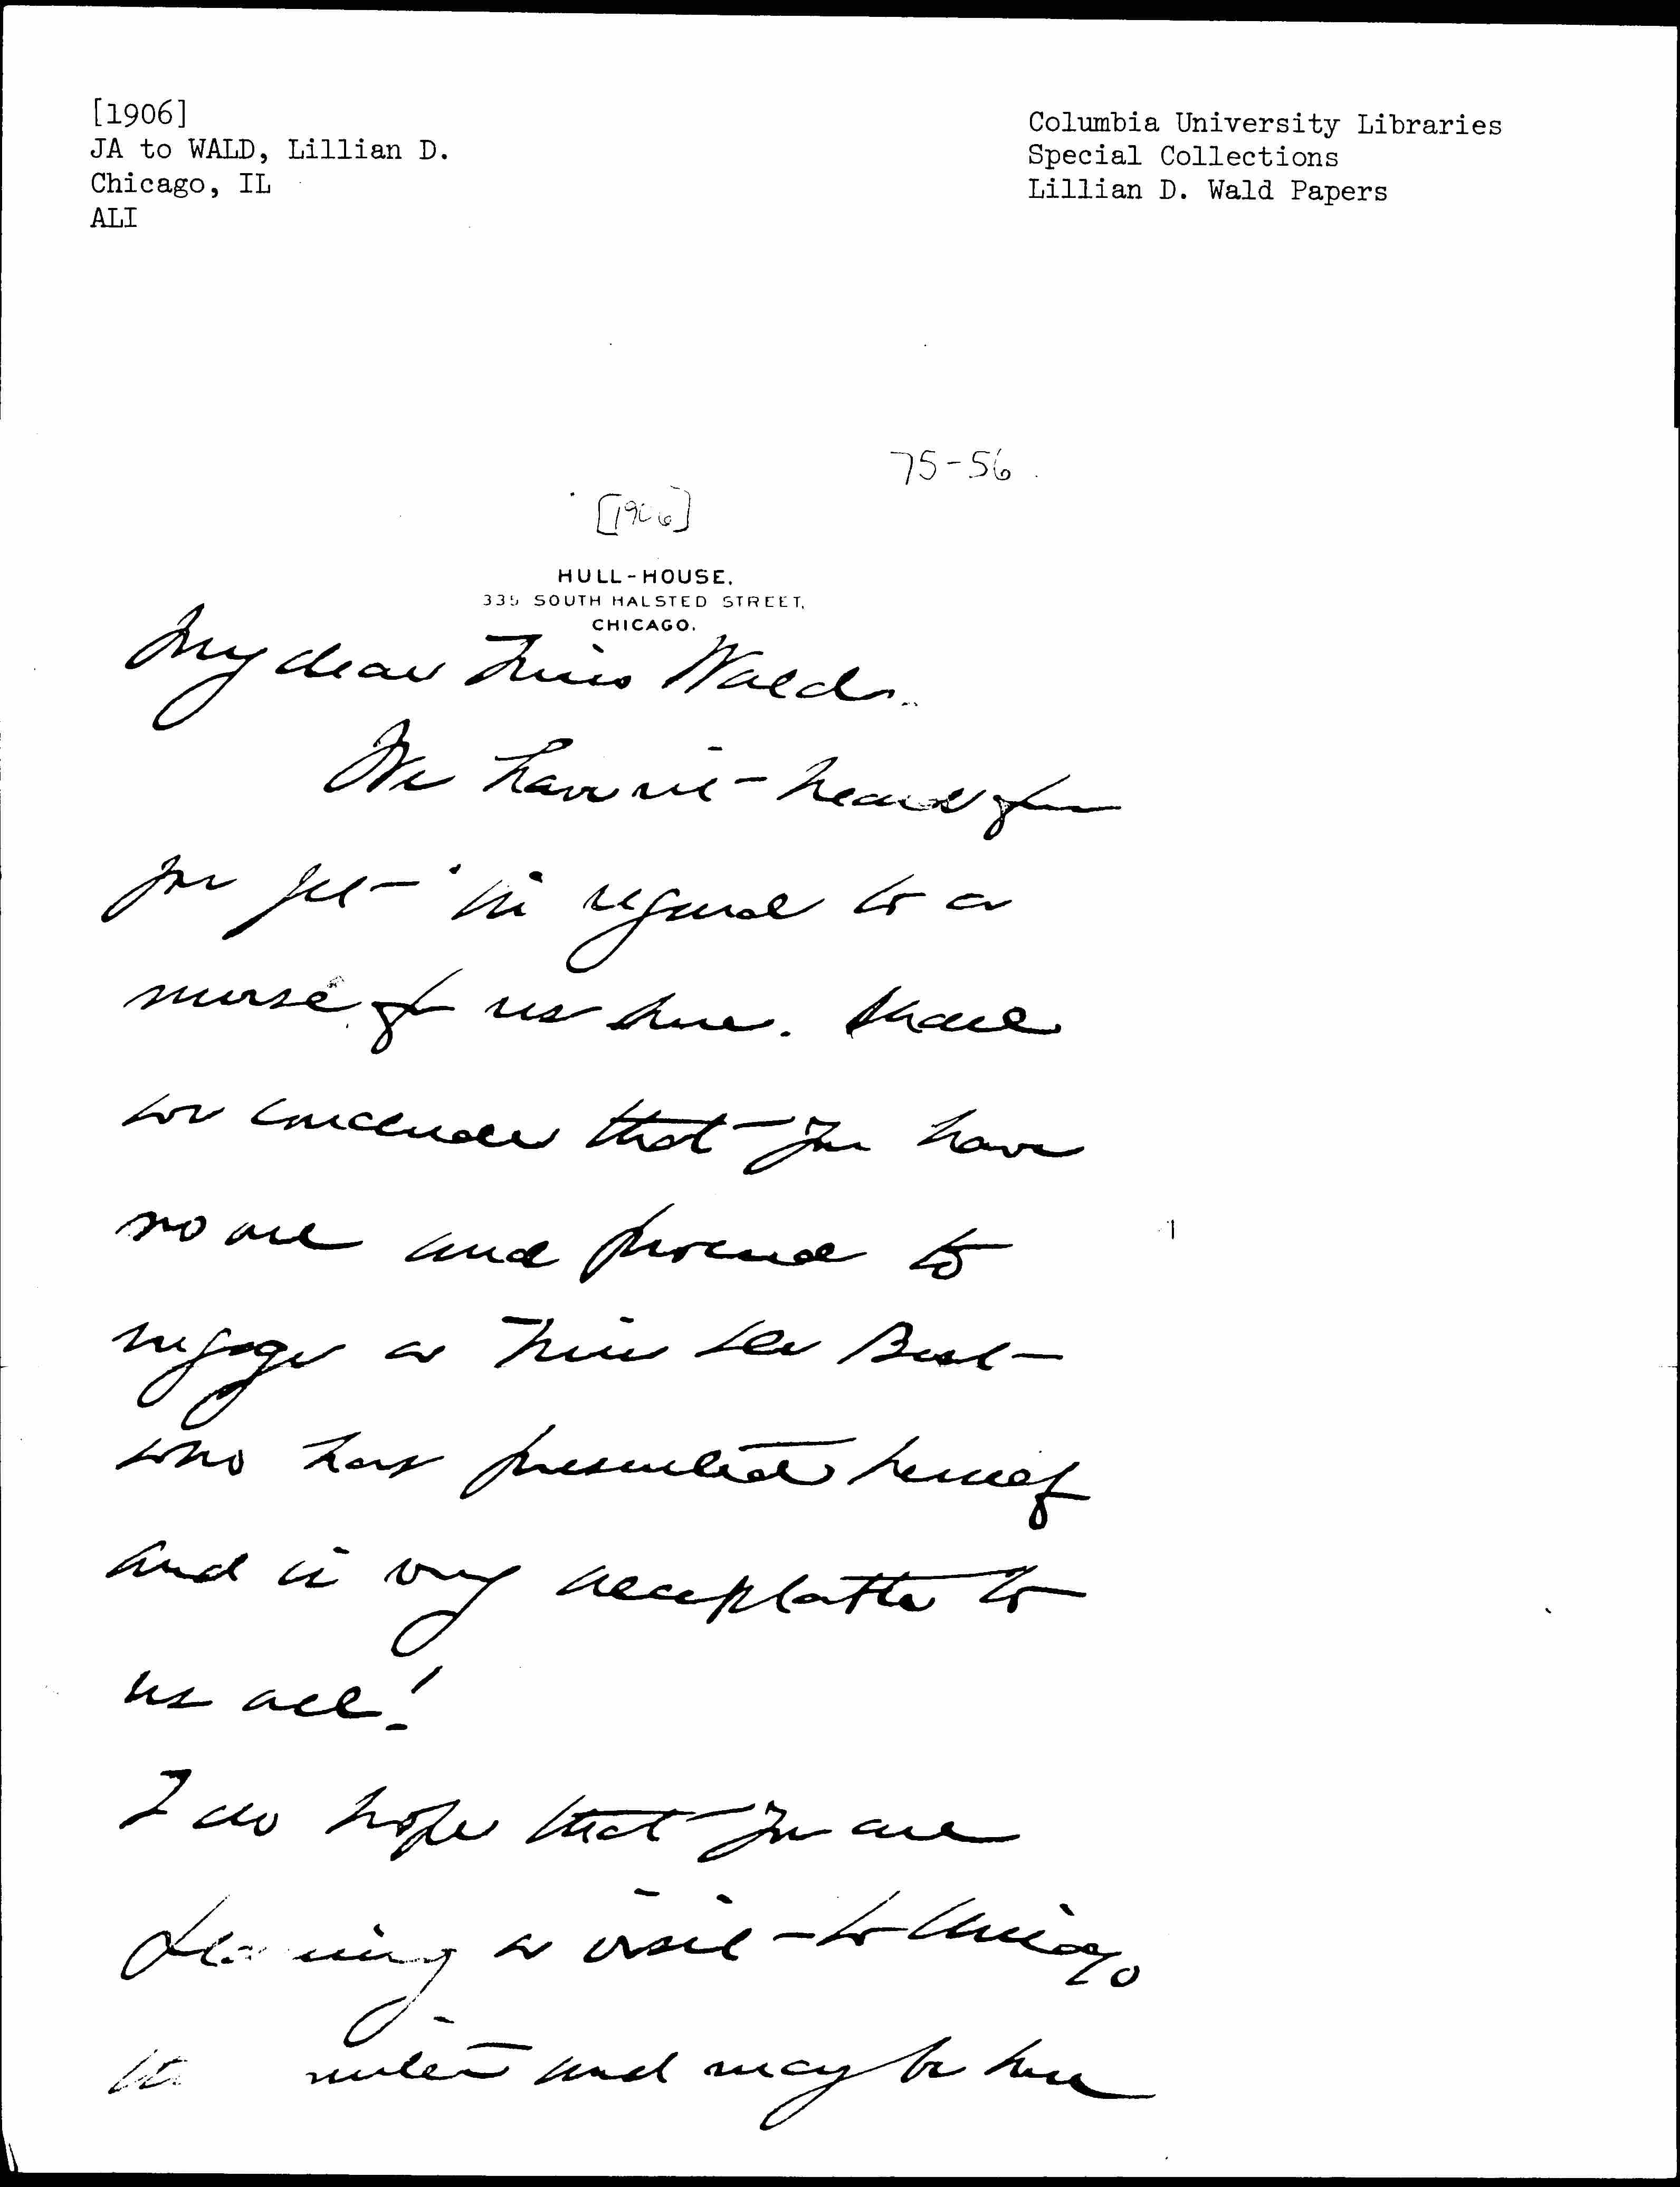 [1906]
JA to WALD, Lillian D.
Chicago, IL
ALI
Columbia University Libraries
Special Collections
Lillian D. Wald Papers
75-56
[1906]
HULL-HOUSE,
335 SOUTH HALSTED STREET,
CHICAGO.
My dear Miss Wald
We have not heard from
you yet in regard to a
nurse for us here. Shall
we conclude that you have
no one and proceed to
engage a Miss Best
who has presented herself
and is very acceptable to
us all!
I do hope that you are
planning a visit to Chicago
this winter and may be here